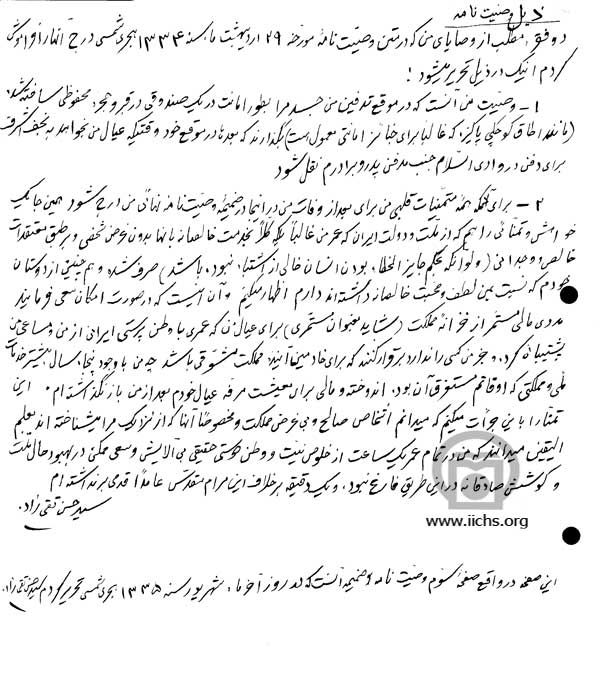 ذیل وصیت نامه
دو فقره مطلب از وصایای من که در متن وصیت نامهٔ مورخهٔ ۲۹ اردیبهشت ماه سنه ۱۳۳۴ هجری شمسی درج آنها را فراموش
کردم اینک در ذیل تحریر میشود:
۱ - وصیت من آنست که در موقع تدفین من جسد مرا بطور امانت در یک صندوقی در قبر و حجره محفوظی ساخته شده
(مانند اطاق کوچکی پاکیزه که غالباً برای جنائز امانتی معمول است) بگذارند که بعدها در موقع خود و وقتیکه عیال من بخواهد به نجف اشرف
برای دفن در وادی السلام جنب مدفن پدر و برادرم نقل شود
۲ - برای آنکه همهٔ متمنیات قلبی من برای بعد از وفات من در اینجا در ضمیمهٔ وصیت نامه نهائی من درج شود همین جا یک
خواهش و تمنائی را هم که از ملت و دولت ایران که عمر من غالباً بلکه کلاً بخدمت خالصانه بآنها بدون غرض شخصی و بر طبق معتقدات
خالص وجدانی (ولو آنکه بحکم جایز الخطا بودن انسان خالی از اشتباه نبوده باشد) صرف شده و هم چنین از دوستان
خودم که نسبت بمن لطف و محبت خالصانه داشته اند دارم اظهار میکنم و آن اینست که در صورت امکان سعی فرمایند
مددی مالی مستمر از خزانهٔ مملکت (شاید بعنوان مستمری) برای عیال من که عمری با وطن پرستی ایرانی از من و مساعی من
پشتیبانی کرده و جز من کسی را ندارد برقرار کنند که برای خادمین آتیهٔ مملکت مشوقی باشد چه من با وجود پنجاه سال بیشتر خدمات
ملی و مملکتی که اوقاتم مستغرق آن بود، اندوخته و مالی برای معیشت مرفه عیال خودم بعد از من باز نگذاشته ام. این
تمنا را با این جرأت میکنم که میدانم اشخاص صالح و بی غرض مملکت و مخصوصاً آنها که از نزدیک مرا میشناخته اند بعلم
الیقین میدانند که من در تمام عمر یک ساعت از خلوص نیت و وطن دوستی حقیقی بی آلایش و سعی ممکن در بهبود حال ملت
و کوشش صادقانه در این طریق فارغ نبوده و یک دقیقه بر خلاف این مرام مقدس عامداً قدمی برنداشته ام
سید حسن تقی زاده.
www.iichs.org
این صفحه در واقع صفحهٔ سوم وصیت نامه و ضمیمه آنست که در روز آخر ماه شهریور سنه ۱۳۳۵ هجری شمسی تحریر کردم سید حسن تقی زاده.